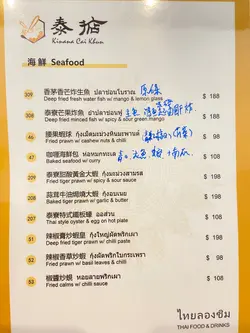 泰掂
Kinana Cai Khun
海鮮 Seafood
309 香茅香芒炸生魚 ปลาช่อนโบราณ $ 188
Deep fried fresh water fish w/ mango & lemon glass
308 泰寮芒果炸魚 $ 198
Deep fried minced fish w/ spicy & sour green mango
46 腰果蝦球 กุ้งเม็ดมะม่วงหิมพานต์ $ 98
Fried prawn w/ cashew nuts & chilli
47 咖哩海鮮包 ห่อหมกทะเล $ 98
Baked seafood w/ curry
209 泰寮甜酸黃金大蝦 กุ้งมะม่วงสามรส $ 198
Fried tiger prawn w/ spicy & sour sauce
208 蒜茸牛油焗大蝦 กุ้งอบเนย $ 198
Baked tiger prawn w/ garlic & butter
207 泰寮特式鐵板蠔 ออส่วน $ 108
Thai style oyster & egg on hot plate
51 辣椒膏炒蝦皇 กุ้งใหญ่ผัดพริกเผา $ 198
Deep fried tiger prawn w/ chilli paste
52 辣椒香草炒蝦 กุ้งผัดพริกใบกระเพรา $ 98
Fried prawn w/ basil leaves & chilli
53 椒醬炒蜆 หอยลายพริกเผา $ 98
Fried calms w/ chilli sauce
ไทยลองชิม
THAI FOOD & DRINKS